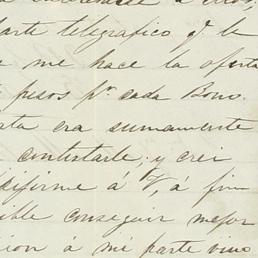 á ellos,
parte telegrafico qe le
me hace la oferta
pesos pr cada Bono.
ata era sumamente
contestarle; y crei
dirijirme á V, á fin
ible conseguir mejor
cion á mi parte vino